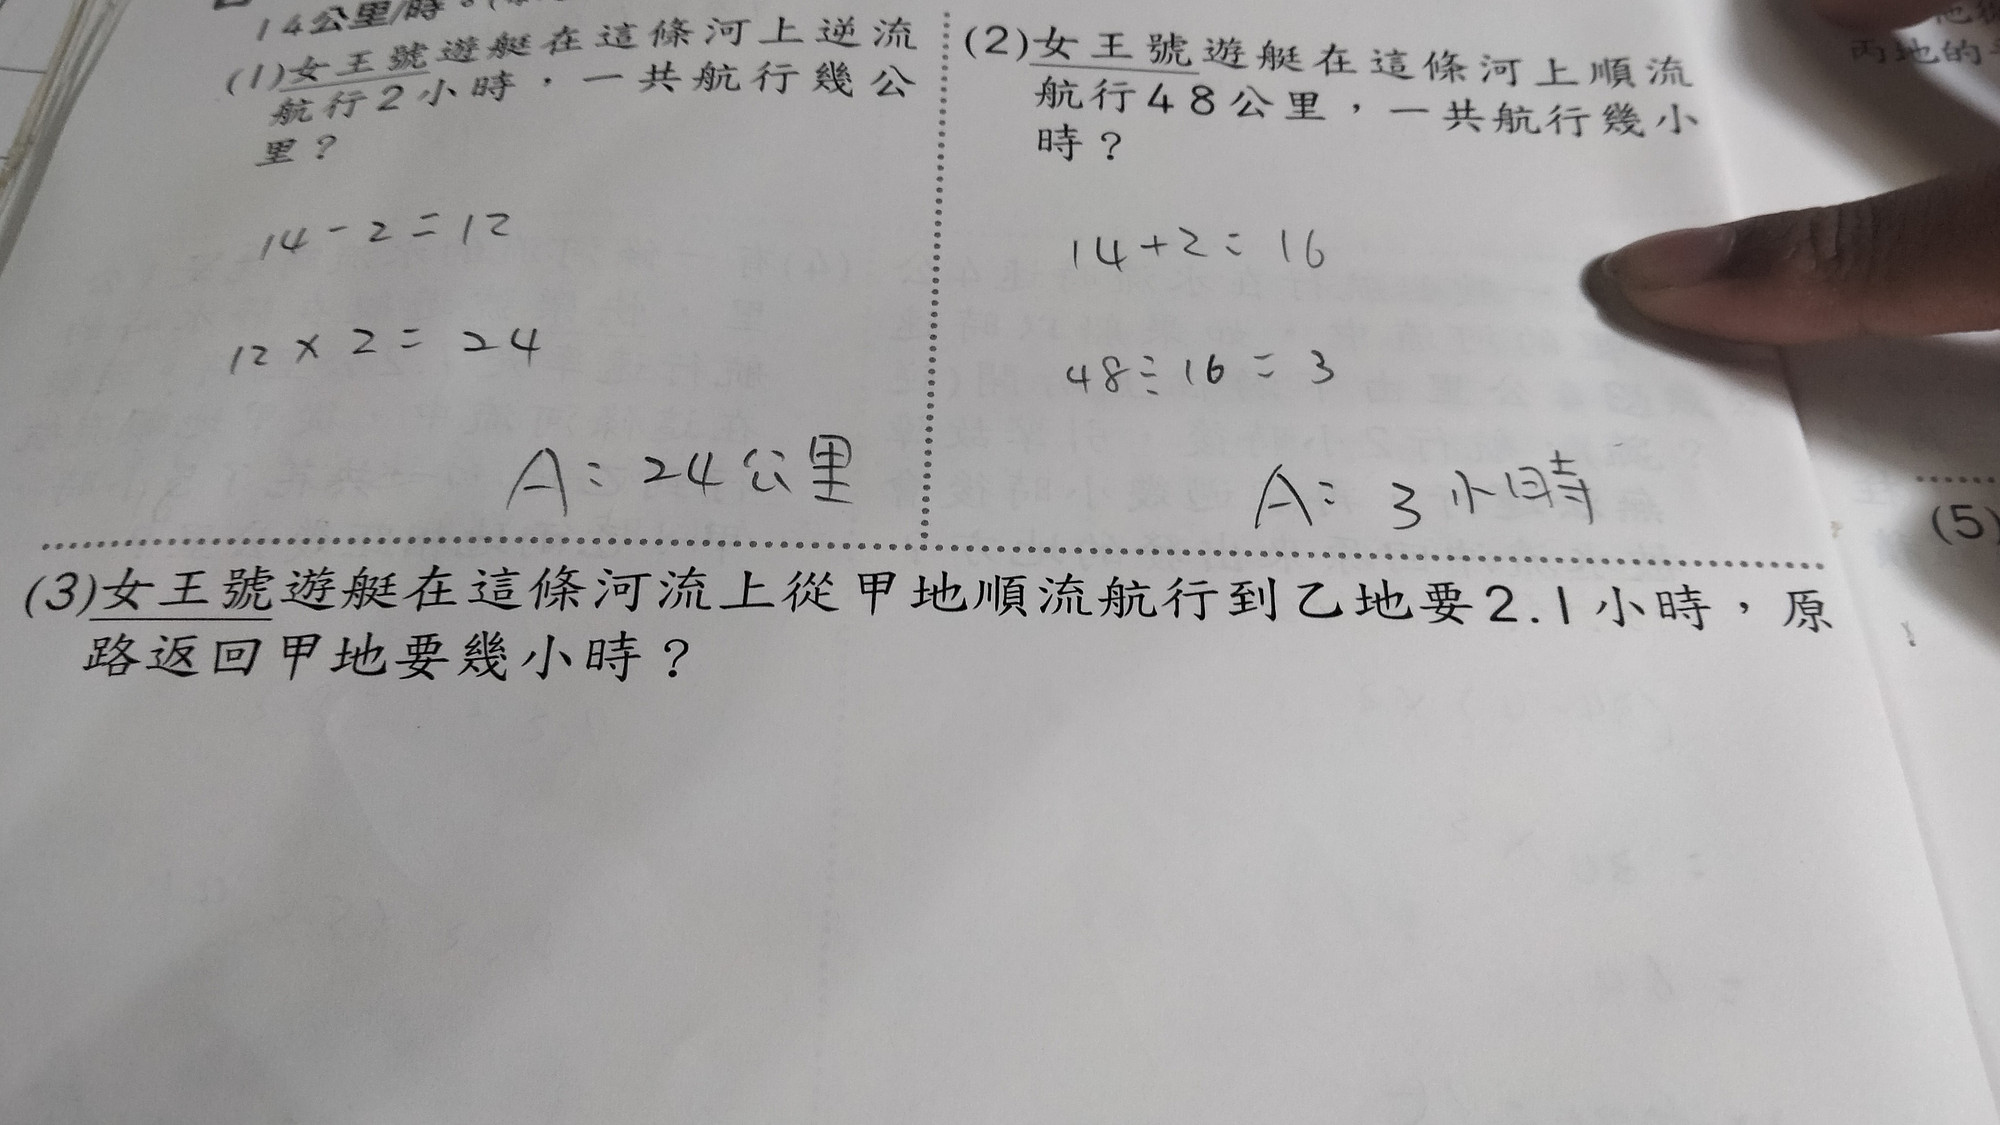 14公里/時
(1)女王號遊艇在這條河上逆流
航行2小時，一共航行幾公
里？
14-2=12
12×2=24
A：24公里
(2)女王號遊艇在這條河上順流
航行48公里，一共航行幾小
時？
14+2=16
48÷16=3
A：3小時
(3)女王號遊艇在這條河流上從甲地順流航行到乙地要2.1小時，原
路返回甲地要幾小時？
丙地的
(5)